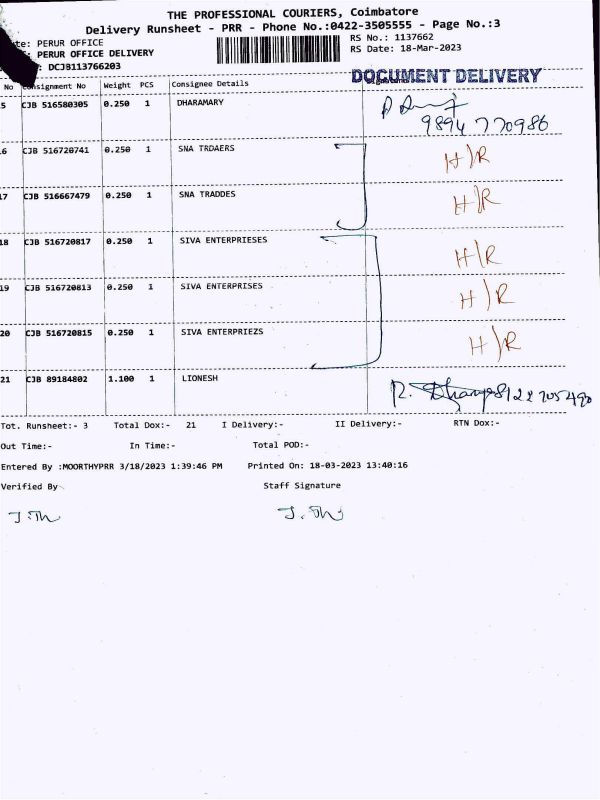 THE PROFESSIONAL COURIERS, Coimbatore
Delivery Runsheet - PRR - Phone No.:0422-3505555 - Page No.:3
te: PERUR OFFICE RS No.: 1137662
: PERUR OFFICE DELIVERY RS Date: 18-Mar-2023
: DCJB113766203
DOCUMENT DELIVERY
No Consignment No Weight PCS Consignee Details
5 CJB 516580305 0.250 1 DHARAMARY
9894770986
16 CJB 516720741 0.250 1 SNA TRDAERS H)R
17 CJB 516667479 0.250 1 SNA TRADDES H)R
18 CJB 516720817 0.250 1 SIVA ENTERPRIESES H)R
19 CJB 516720813 0.250 1 SIVA ENTERPRISES H)R
20 CJB 516720815 0.250 1 SIVA ENTERPRIEZS H)R
21 CJB 89184802 1.100 1 LIONESH R.
Tot. Runsheet:- 3 Total Dox:- 21 I Delivery:- II Delivery:- RTN Dox:-
Out Time:- In Time:- Total POD:-
Entered By :MOORTHYPRR 3/18/2023 1:39:46 PM Printed On: 18-03-2023 13:40:16
Verified By Staff Signature